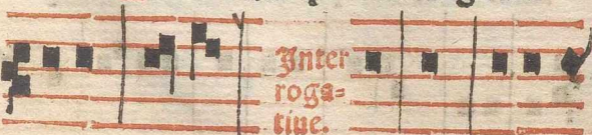 Inter
roga=
tiue.